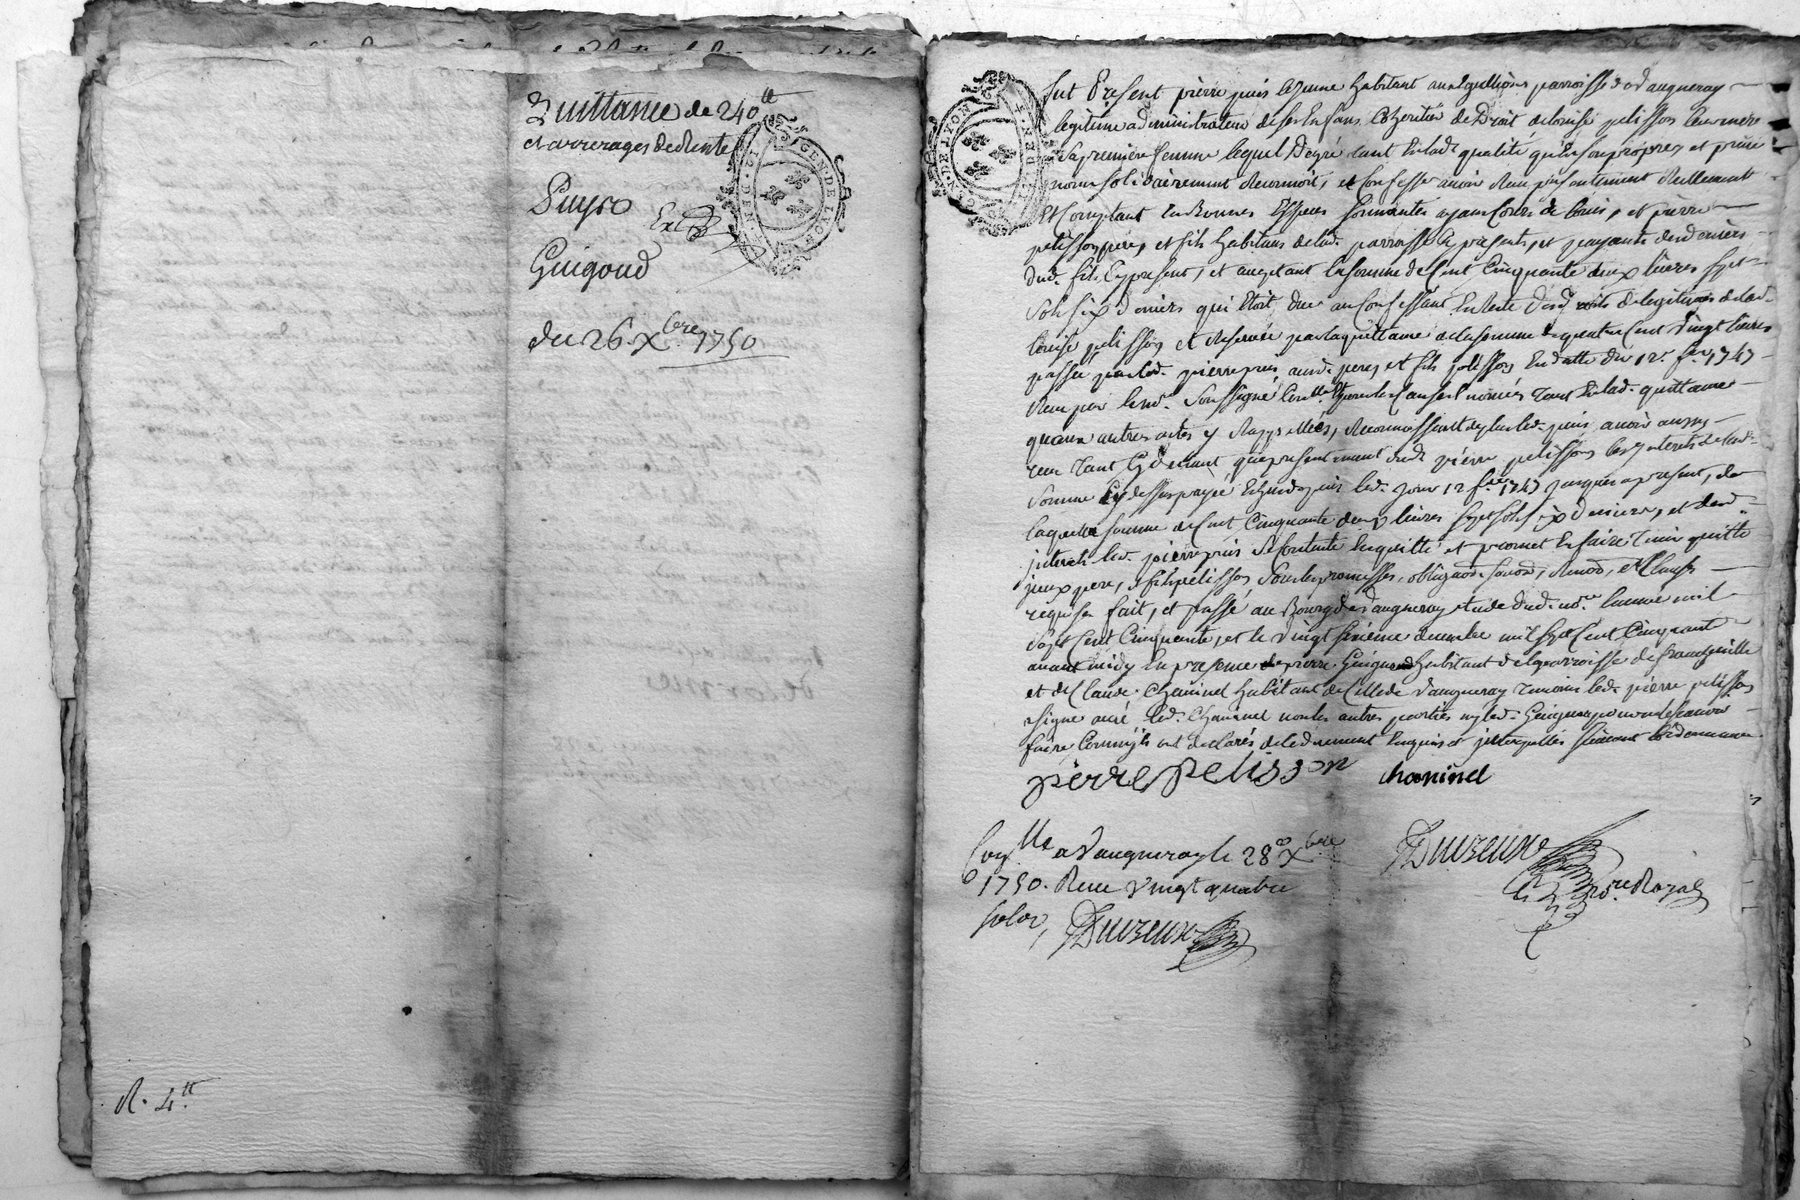 Quittance de 240 ₶
et arrerages de Rente
Puyro
Guigoud
du 26. Xbre. 1750
GEN. DE LYON
R. 4 ₶
GEN. DE LYON
fut Present pierre puis lejeune habitant parroisse de vaugneray
legitime administrateur de ses Enfans Et heritiers de Droit de louise pelisson leur mere
sa premiere femme lequel De gré tant En lad. qualité qu'En son propre, et privé
nom solidairement Reconnoit, et Confesse avoir Reçu presentement Reellement
Et Comptant En Bonnes Especes sonnantes ayant Cours de louis, et pierre
pelisson pere, et fils habitans de lad. parroisse Cy presents, et payants des deniers
dud. fils Cy present, et acceptant la somme de Cent Cinquante deux livres sept
sols six deniers qui Etoit due au Confessant En Reste des droits de legitimes de lad.
louise pelisson et Reservée par la quittance de la somme de quatre Cent vingt livres
passée par led. pierre puis auxd. pere, et fils pelisson En datte du 12e. fer. 1747
Recu par le nore. soussigné tant En lad. quittance
qu'aux autres actes y Rappellés, Reconnoissant de plus led. puis avoir aussy
reçu tant Cy devant, que presentement dud. pierre pelisson les interets de lad.
somme Cy dessus payée Echus depuis led. jour 12 fer. 1747 jusques a present, de
laquelle somme de Cent Cinquante deux livres sept sols six deniers, et des d.
interets led. pierre puis se Contente En quitte et promet En faire tenir quitte
iceux pere, et fils pelisson sous les promesses, obligaons. soumons, Renons, et Clauses
requises fait, et passé au Bourg de vaugneray etude dud. nore. l'année mil
sept Cent Cinquante, et le vingt sixieme decembre
avant midy En presence de pierre Guigoud habitant de la parroisse de francheville
et de Claude Chaninel habitant de Celle de vaugneray temoins led. pierre pelisson
signe avec led. Chaninel non les autres parties ny led. Guigoud pour ne le scavoir
faire Comm'ils ont declarés de ce duement Enquis et interpellés suivant l'ordonnance
pierre pelisson chaninel
Conllé a Vaugneray le 28e Xbre
1750. Reçu Vingt quatre
sols
Duvzeux
nore Royal